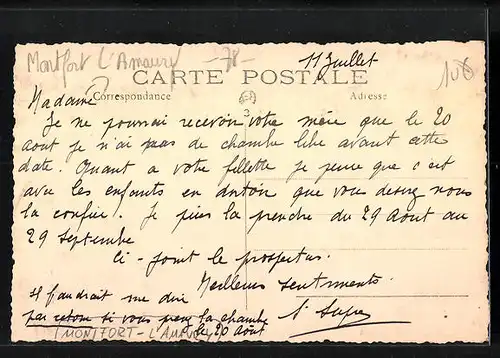 Montfort L'Amaury -78-
11 Juillet
106
CARTE POSTALE
Correspondance
Adresse
3
Madame
Je ne pourrai recevoir votre mère que le 20
Aout je n'ai pas de chambre libre avant cette
date. Quant a votre fillette je pense que c'est
avec les enfants en que vous desirez nous
la confier. Je puis la prendre du 29 Aout au
29 Septembre
Ci-joint le prospectus.
Meilleurs sentiments
Il faudrait me dire
par retour si vous prenez la chambre
le 20 Août
(MONTFORT-L'AMAURY)